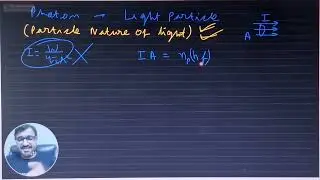 Photon → Light Particle
(Particle Nature of light) I
I = W/4πr² IA = np(hf) A